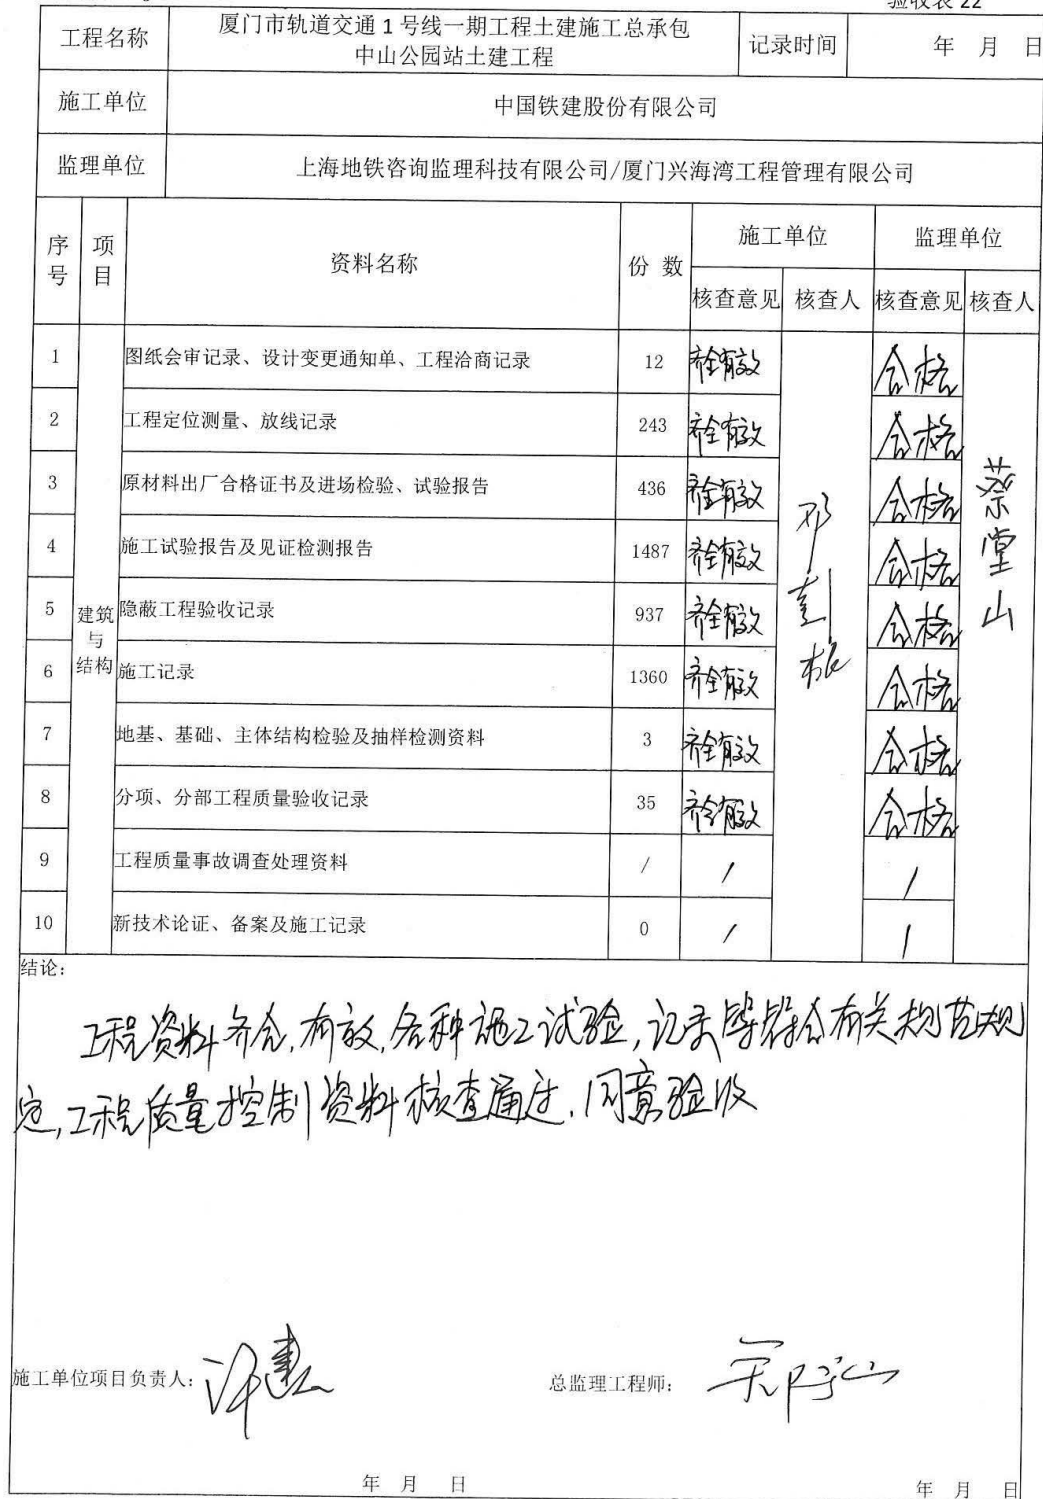 验收表 22
工程名称
厦门市轨道交通 1 号线一期工程土建施工总承包
中山公园站土建工程
记录时间
年 月 日
施工单位
中国铁建股份有限公司
监理单位
上海地铁咨询监理科技有限公司/厦门兴海湾工程管理有限公司
序号
项目
资料名称
份 数
施工单位
监理单位
核查意见 核查人 核查意见 核查人
建筑与结构
1 图纸会审记录、设计变更通知单、工程洽商记录 12 齐全有效 合格
2 工程定位测量、放线记录 243 齐全有效 合格
3 原材料出厂合格证书及进场检验、试验报告 436 齐全有效 合格
4 施工试验报告及见证检测报告 1487 齐全有效 合格
5 隐蔽工程验收记录 937 齐全有效 合格
6 施工记录 1360 齐全有效 合格
7 地基、基础、主体结构检验及抽样检测资料 3 齐全有效 合格
8 分项、分部工程质量验收记录 35 齐全有效 合格
9 工程质量事故调查处理资料 / / /
10 新技术论证、备案及施工记录 0 / /
蔡堂山
结论：
工程资料齐全,有效,各种施工试验,记录皆符合有关规范规
定,工程质量控制资料核查通过,同意验收
施工单位项目负责人：
总监理工程师：
年 月 日
年 月 日